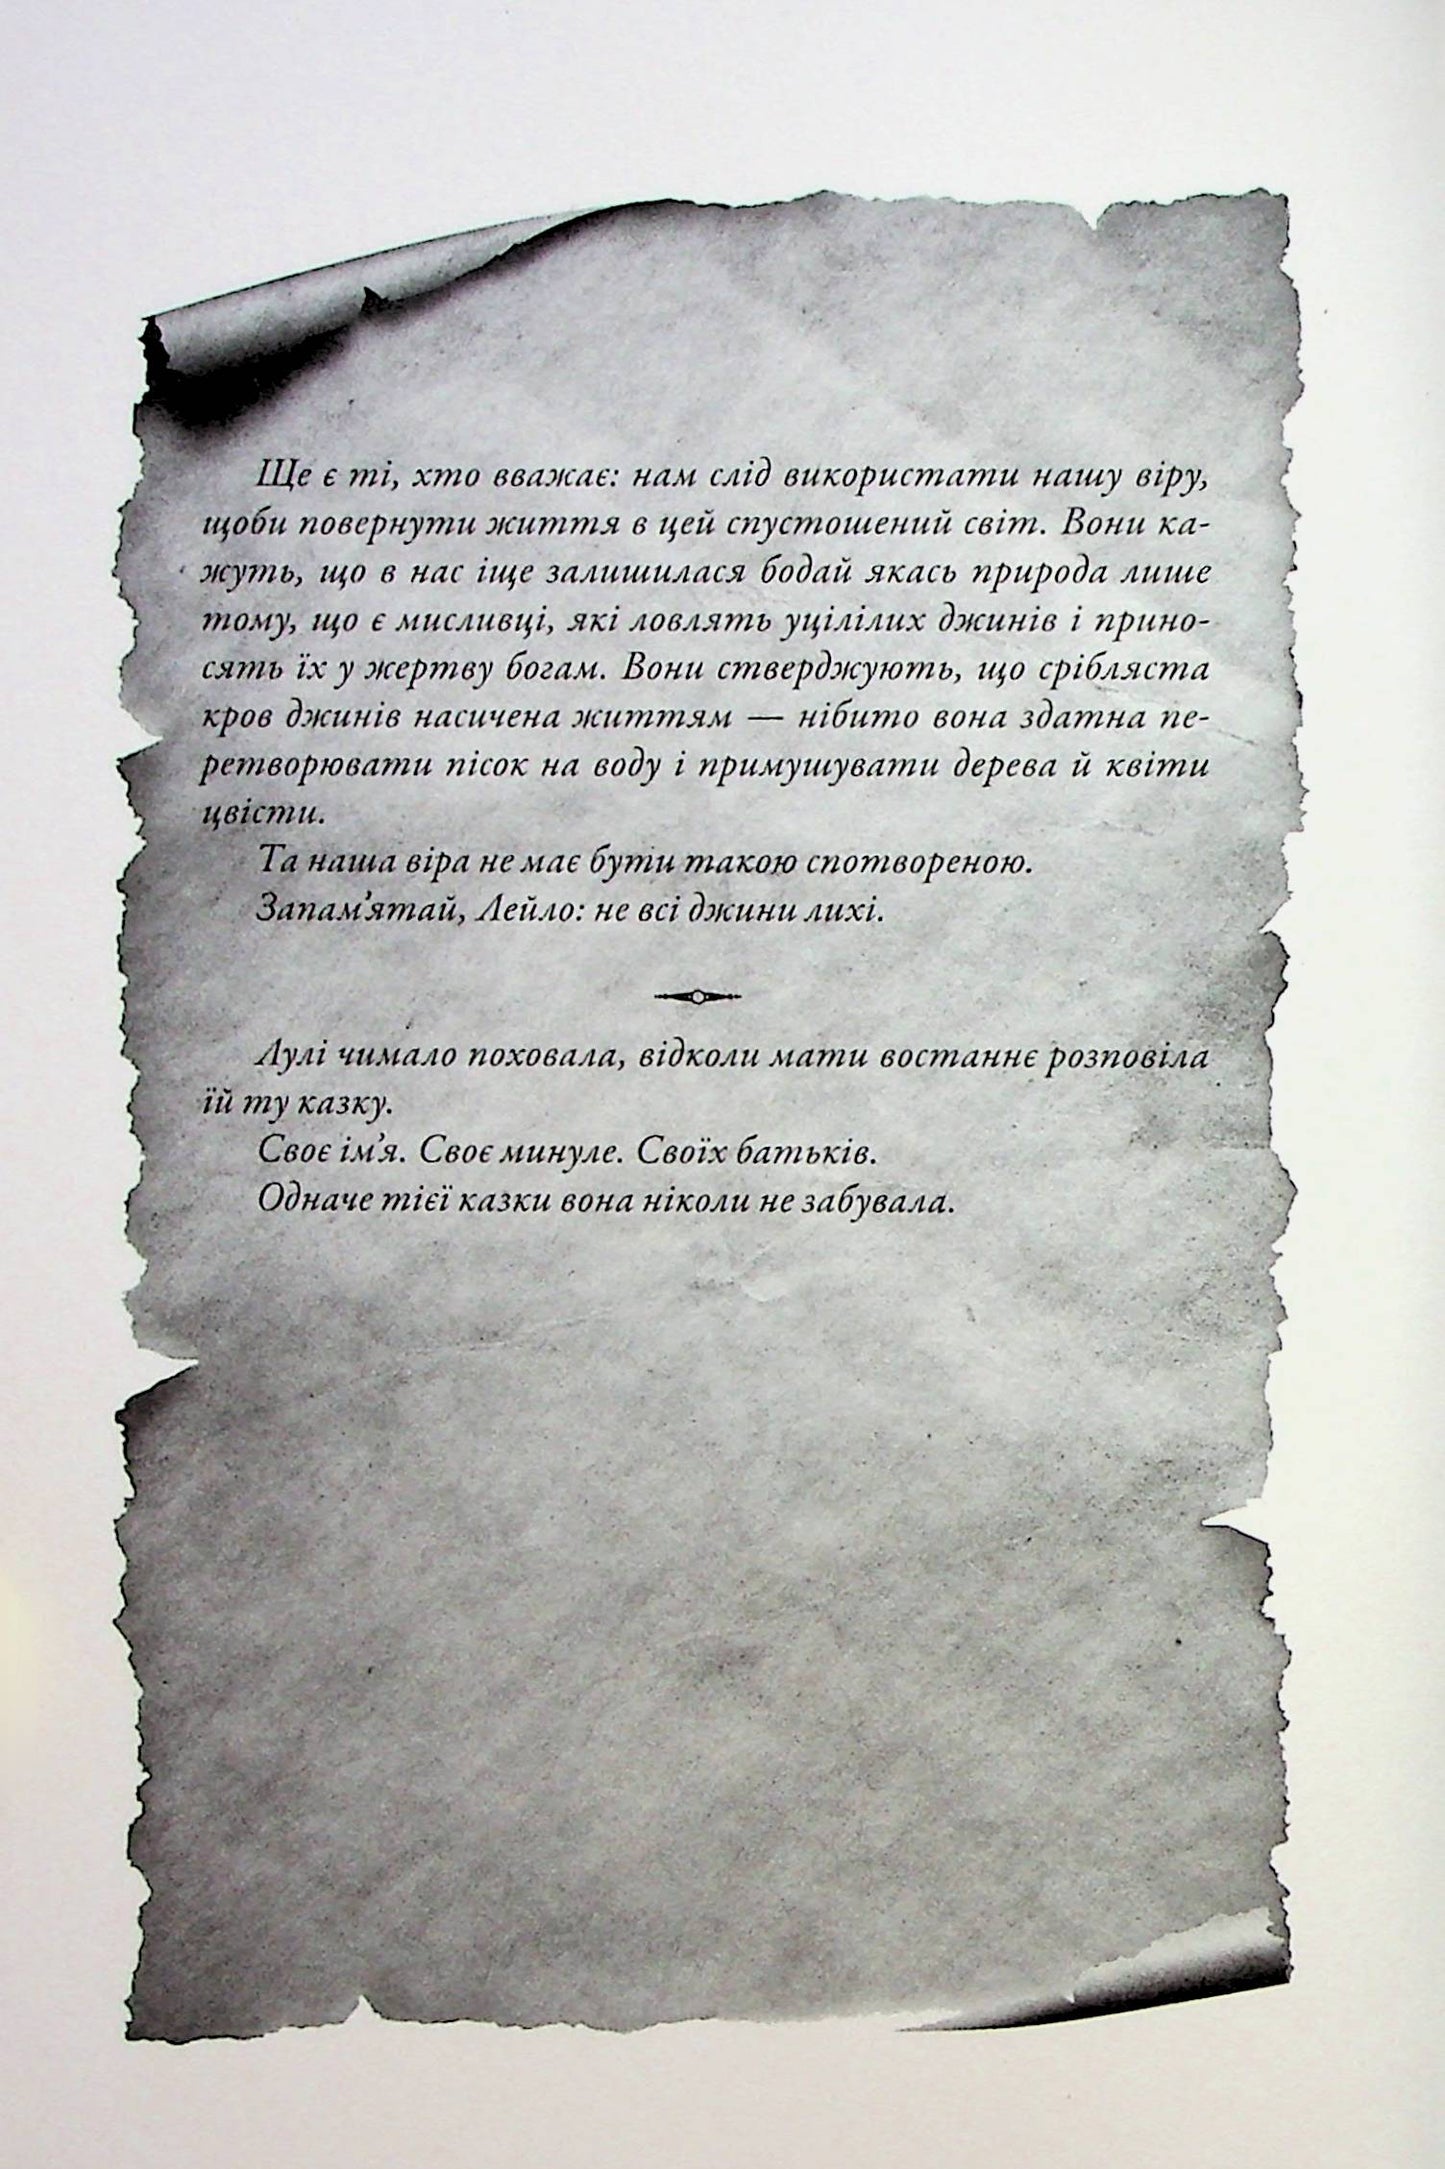 Ще є ті, хто вважає: нам слід використати нашу віру,
щоби повернути життя в цей спустошений світ. Вони ка-
жуть, що в нас іще залишилася бодай якась природа лише
тому, що є мисливці, які ловлять уцілілих джинів і прино-
сять їх у жертву богам. Вони стверджують, що срібляста
кров джинів насичена життям — нібито вона здатна пе-
ретворювати пісок на воду і примушувати дерева й квіти
цвісти.
Та наша віра не має бути такою спотвореною.
Запам’ятай, Лейло: не всі джини лихі.
Лулі чимало поховала, відколи мати востаннє розповіла
їй ту казку.
Своє ім’я. Своє минуле. Своїх батьків.
Одначе тієї казки вона ніколи не забувала.